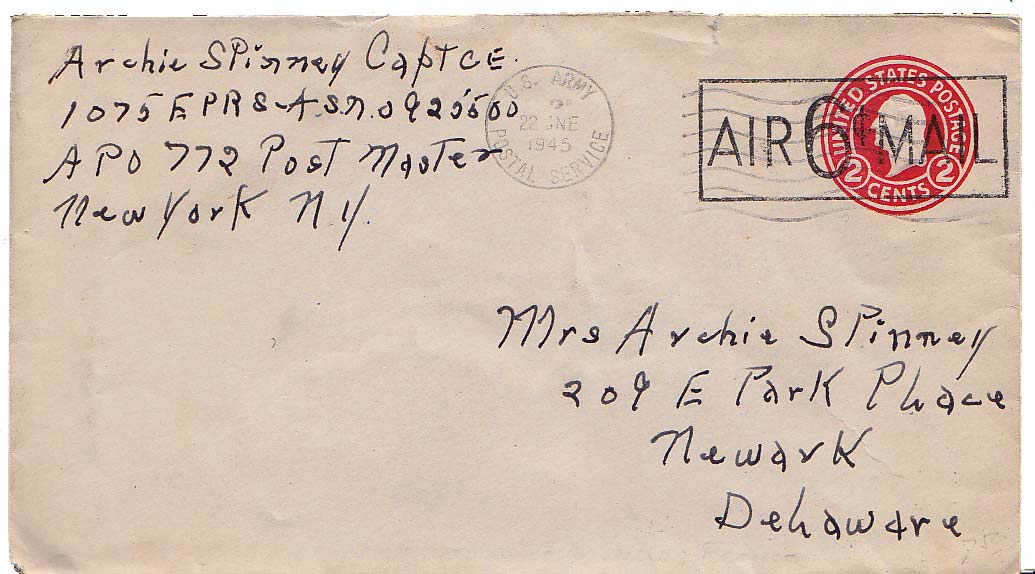 Archie Spinney Capt CE.
1075 EPRS-A.S.N. 0925500
APO 772 Post Master
New York N.Y.
U.S. ARMY
22 JNE
1945
POSTAL SERVICE
UNITED STATES POSTAGE
AIR 6¢ MAIL
2 CENTS 2
Mrs Archie Spinney
209 E Park Place
Newark
Delaware